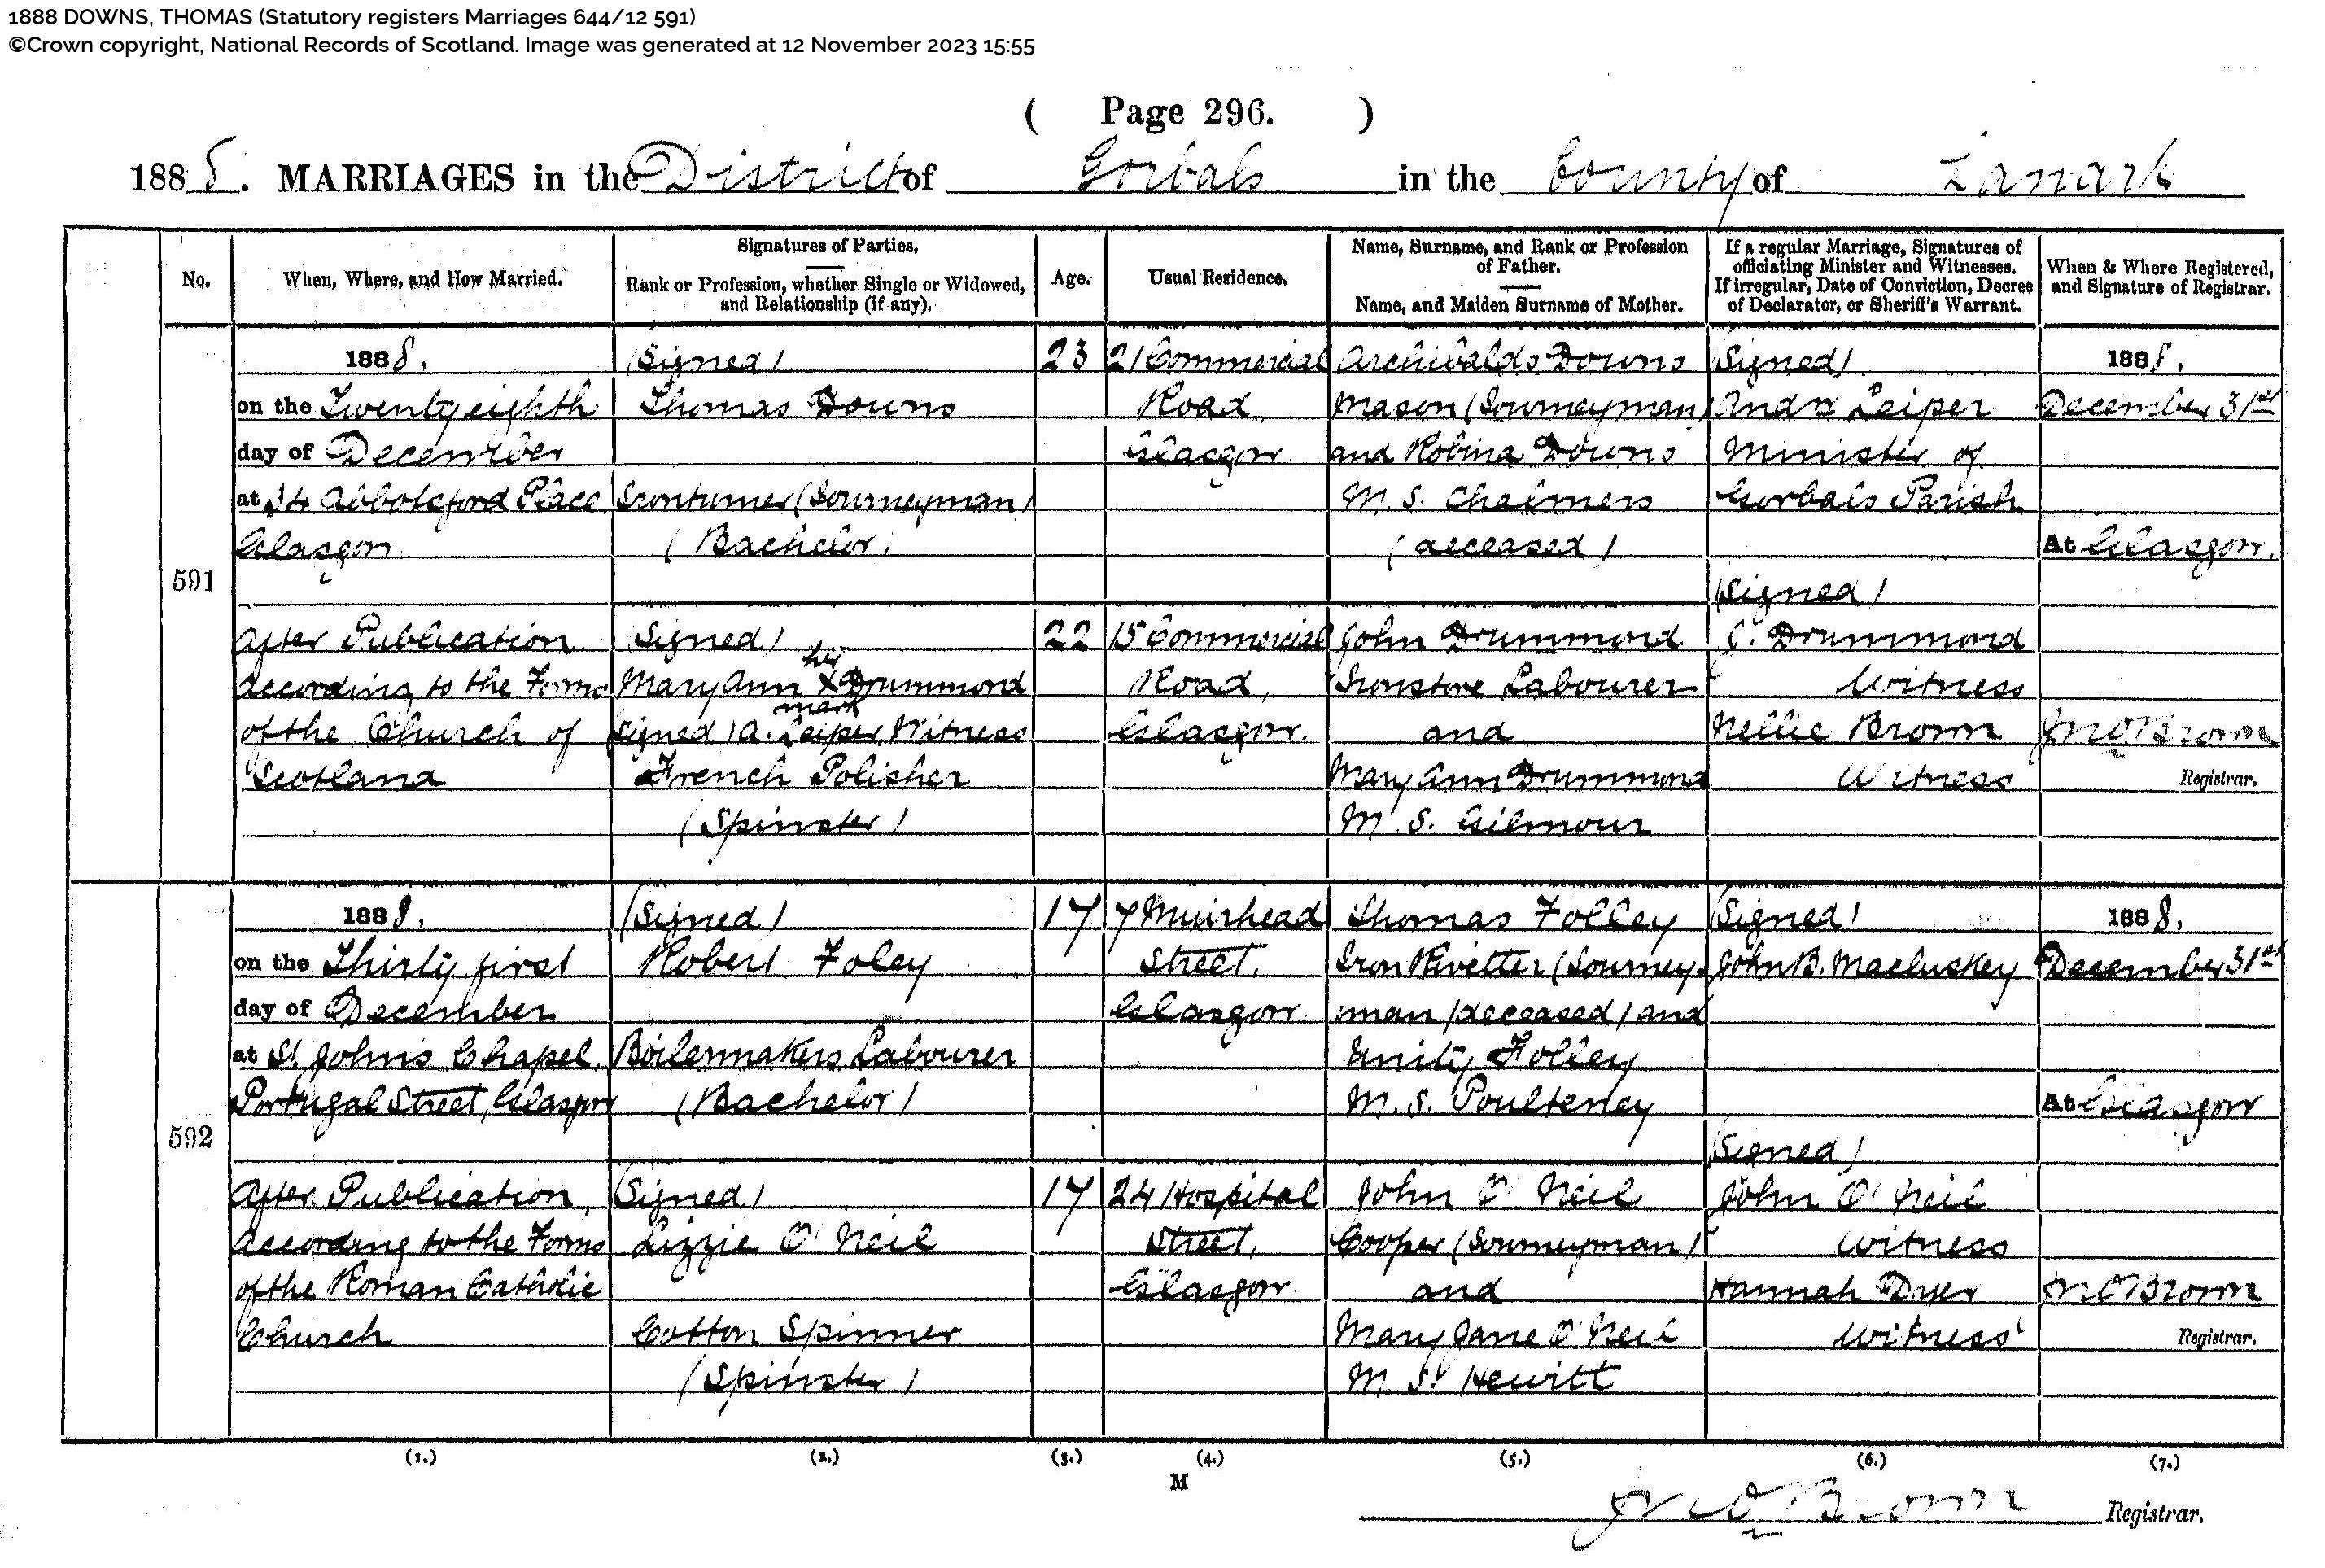 1888 DOWNS, THOMAS (Statutory registers Marriages 644/12 591)
©Crown copyright, National Records of Scotland. Image was generated at 12 November 2023 15:55
( Page 296. )
1888. MARRIAGES in the District of Gorbals in the County of Lanark
No.
When, Where, and How Married.
Signatures of Parties.
Rank or Profession, whether Single or Widowed,
and Relationship (if any).
Age.
Usual Residence.
Name, Surname, and Rank or Profession
of Father.
Name, and Maiden Surname of Mother.
If a regular Marriage, Signatures of
officiating Minister and Witnesses.
If irregular, Date of Conviction, Decree
of Declarator, or Sheriff's Warrant.
When & Where Registered,
and Signature of Registrar.
591
1888.
on the Twenty eighth
day of December
at 34 Abbotsford Place
Glasgow
After Publication
according to the Forms
of the Church of
Scotland
(Signed)
Thomas Downs
Ironturner (Journeyman)
(Bachelor)
(Signed)
her
Mary Ann X Drummond
mark
Signed) A. Leiper, Witness
French Polisher
(Spinster)
23
22
21 Commercial
Road
Glasgow
15 Commercial
Road,
Glasgow.
Archibald Downs
Mason (Journeyman)
and Robina Downs
M. S. Chalmers
(deceased)
John Drummond
Ironstore Labourer
and
Mary Ann Drummond
M. S. Gilmour
(Signed)
Andw Leiper
Minister of
Gorbals Parish
(Signed)
J. Drummond
Witness
Nellie Brown
Witness
1888.
December 31st
At Glasgow.
Brown
Registrar.
592
1888.
on the Thirty first
day of December
at St. Johns Chapel,
Portugal Street, Glasgow
After Publication,
according to the Forms
of the Roman Catholic
Church
(Signed)
Robert Foley
Boilermakers Labourer
(Bachelor)
(Signed)
Lizzie O'Neil
Cotton Spinner
(Spinster)
17
17
7 Muirhead
Street,
Glasgow
24 Hospital
Street,
Glasgow
Thomas Folley
Iron Rivetter (Journey-
man) (deceased) and
Unity Folley
M. S. Poulteney
John O'Neil
Cooper (Journeyman)
and
Mary Jane O'Neil
M. S. Hewitt
(Signed)
John B. Macluskey
(Signed)
John O'Neil
Witness
Hannah Dyer
Witness
1888.
December 31st
At Glasgow
Brown
Registrar.
(1.) (2.) (3.) (4.) (5.) (6.) (7.)
M
Brown Registrar.